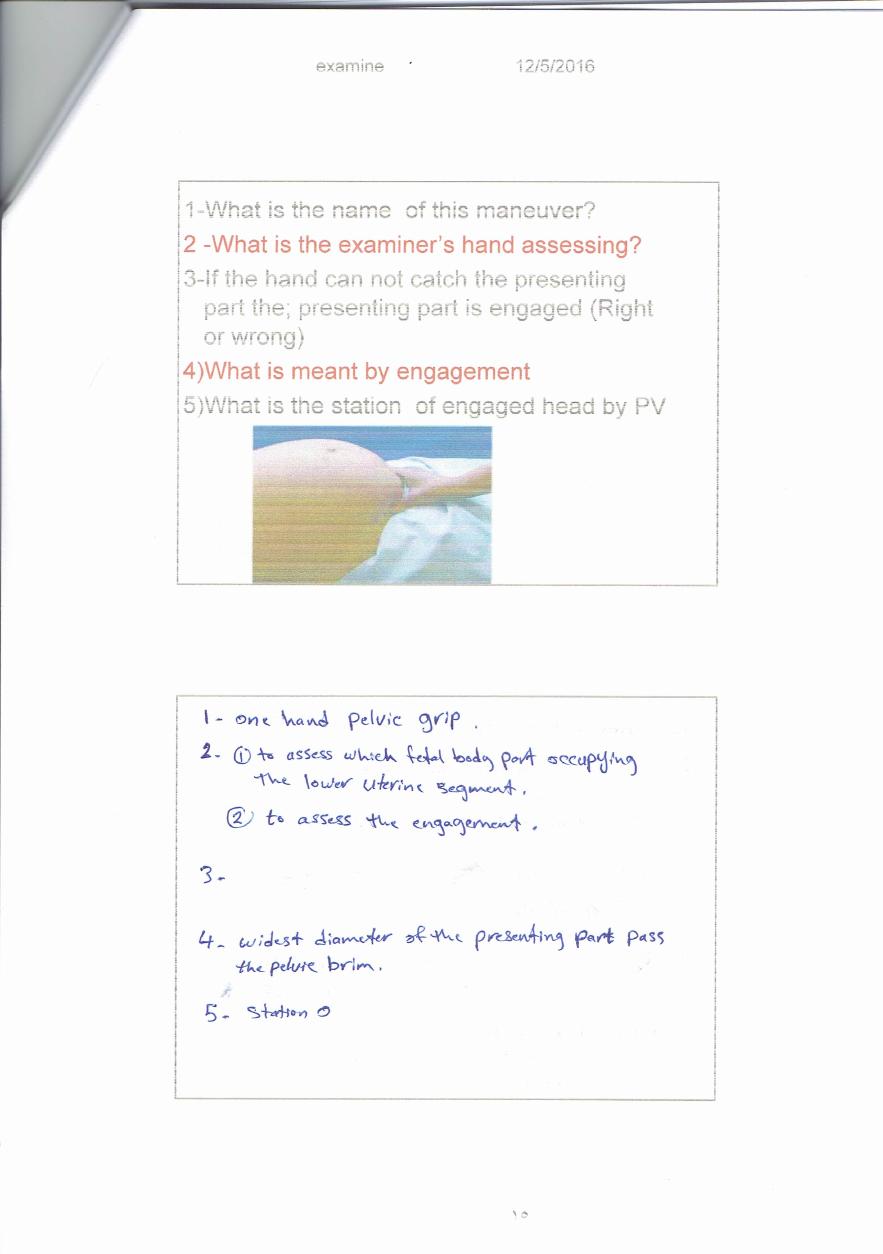 examine 12/5/2016
1-What is the name of this maneuver?
2 -What is the examiner's hand assessing?
3-If the hand can not catch the presenting
part the; presenting part is engaged (Right
or wrong)
4)What is meant by engagement
5)What is the station of engaged head by PV
1- one hand pelvic grip.
2- ① to assess which fetal body part occupying
the lower uterine segment.
② to assess the engagement.
3-
4- widest diameter of the presenting part pass
the pelvic brim.
5- Station 0
١٥